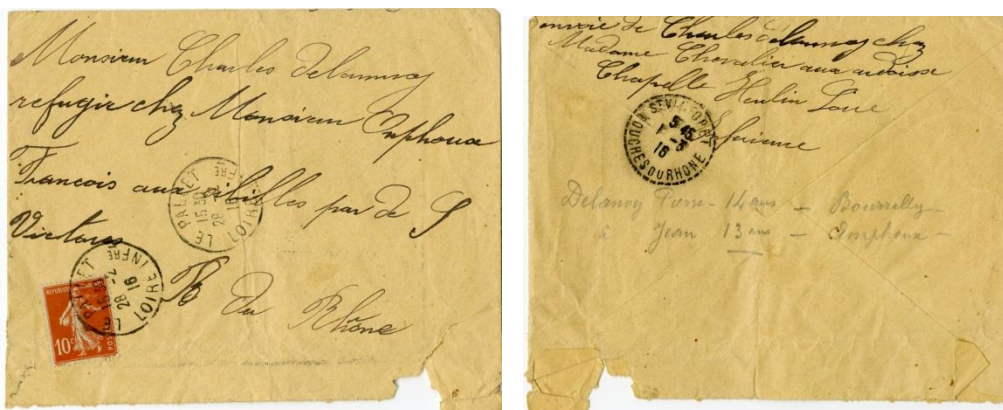 Monsieur Charles delaunoy
refugie chez Monsieur Onphoux
Francois aux par de S
Victoret
B du Rhône
LE PALLET
15 30
28 -2
16
LOIRE INFRE
LE PALLET
15 30
28 -2
16
LOIRE INFRE
REPUBLIQUE FRANÇAISE
10c
POSTES
envoie de Charles delaunoy chez
Madame Chevalier aux
Chapelle Heulin Loire
5 45
16
BOUCHES DU RHONE
Delanoy Pierre - 14 ans - Bourrelly -
à Jean 13 ans - Onphoux -